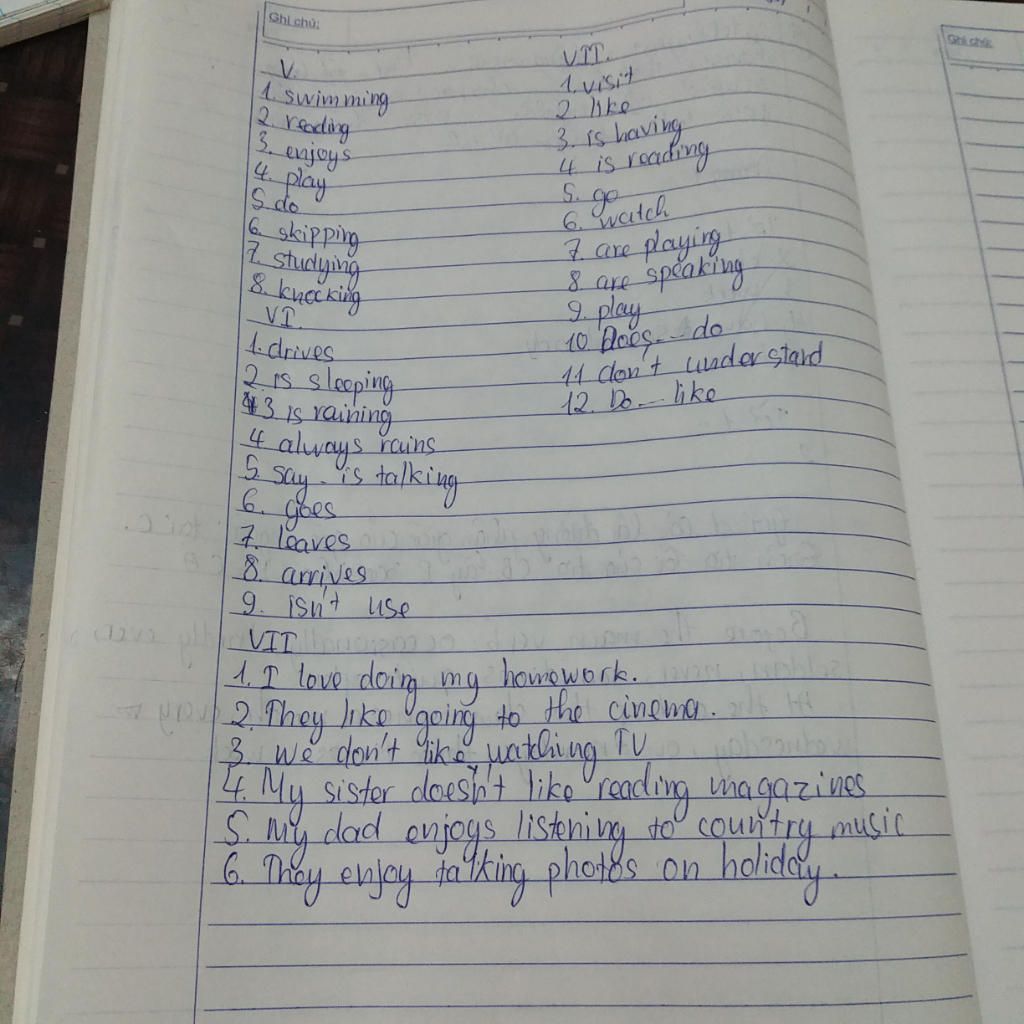 Ghi chú:
V.
1. swimming
2. reading
3. enjoys
4. play
5. do
6. skipping
7. studying
8. knocking
VI.
1. drives
2. is sleeping
3 is raining
4 always rains
5. say - is talking
6. goes
7. leaves
8. arrives
9. isn't use
VII
1. I love doing my homework.
2. They like going to the cinema.
3. We don't like watching TV
4. My sister doesn't like reading magazines
5. My dad enjoys listening to country music
6. They enjoy talking photos on holiday.
VII.
1. visit
2. like
3. is having
4 is reading
5. go
6. watch
7. are playing
8 are speaking
9. play
10 Does --- do
11 don't understand
12. Do --- like
Ghi chú: